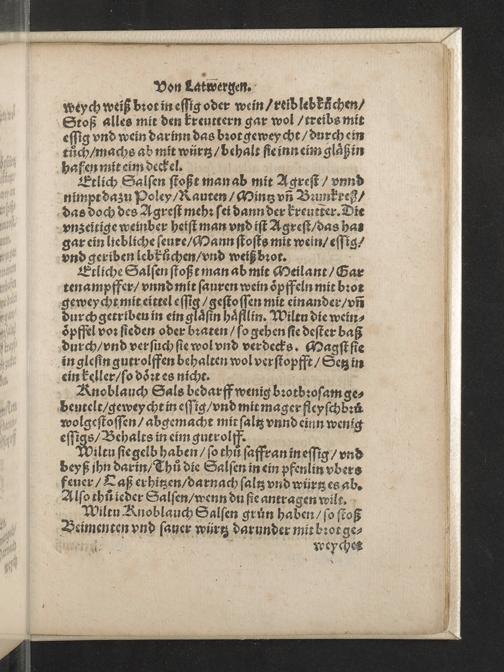 Von Latwergen.
weych weiß brot in essig oder wein / reib lebkůchen /
Stoß alles mit den kreuttern gar wol / treibs mit
essig vnd wein darinn das brot geweycht / durch ein
tůch / machs ab mit würtz / behalt sie inn eim gläßin
hafen mit eim deckel.
Etlich Salsen stoßt man ab mit Agrest / vnnd
nimpt dazu Poley / Rauten / Mintz vñ Brunkreß /
das doch des Agrest mehr sei dann der kreutter. Die
vnzeitige weinber heist man vnd ist Agrest / das hat
gar ein liebliche seure / Mann stosts mit wein / essig /
vnd geriben lebkůchen / vnd weißbrot.
Etliche Salsen stoßt man ab mit Meilant / Gar
tenampffer / vnnd mit sauren wein öpffeln mit brot
geweycht mit eittel essig / gestossen mit einander / vñ
durch getriben in ein gläsin häfflin. Wiltu die wein-
öpffel vor sieden oder braten / so gehen sie dester baß
durch / vnd versuch sie wol vnd verdecks. Magst sie
in glesin gutrolffen behalten wol verstopfft / Setz in
ein keller / so dört es nicht.
Knoblauch Sals bedarff wenig brotbrosam ge-
beutelt / geweycht in essig / vnd mit mager fleyschbrů
wolgestossen / abgemacht mit saltz vnnd einn wenig
essigs / Behalts in eim gutrolff.
Wiltu sie gelb haben / so thů saffran in essig / vnd
beyß ihn darin / Thů die Salsen in ein pfenlin vbers
feuer / Laß erhitzen / darnach saltz vnd würtz es ab.
Also thů ieder Salsen / wenn du sie antragen wilt.
Wiltu Knoblauch Salsen grün haben / so stoß
Beimenten vnd sauer würtz darunder mit brot ge-
weychet